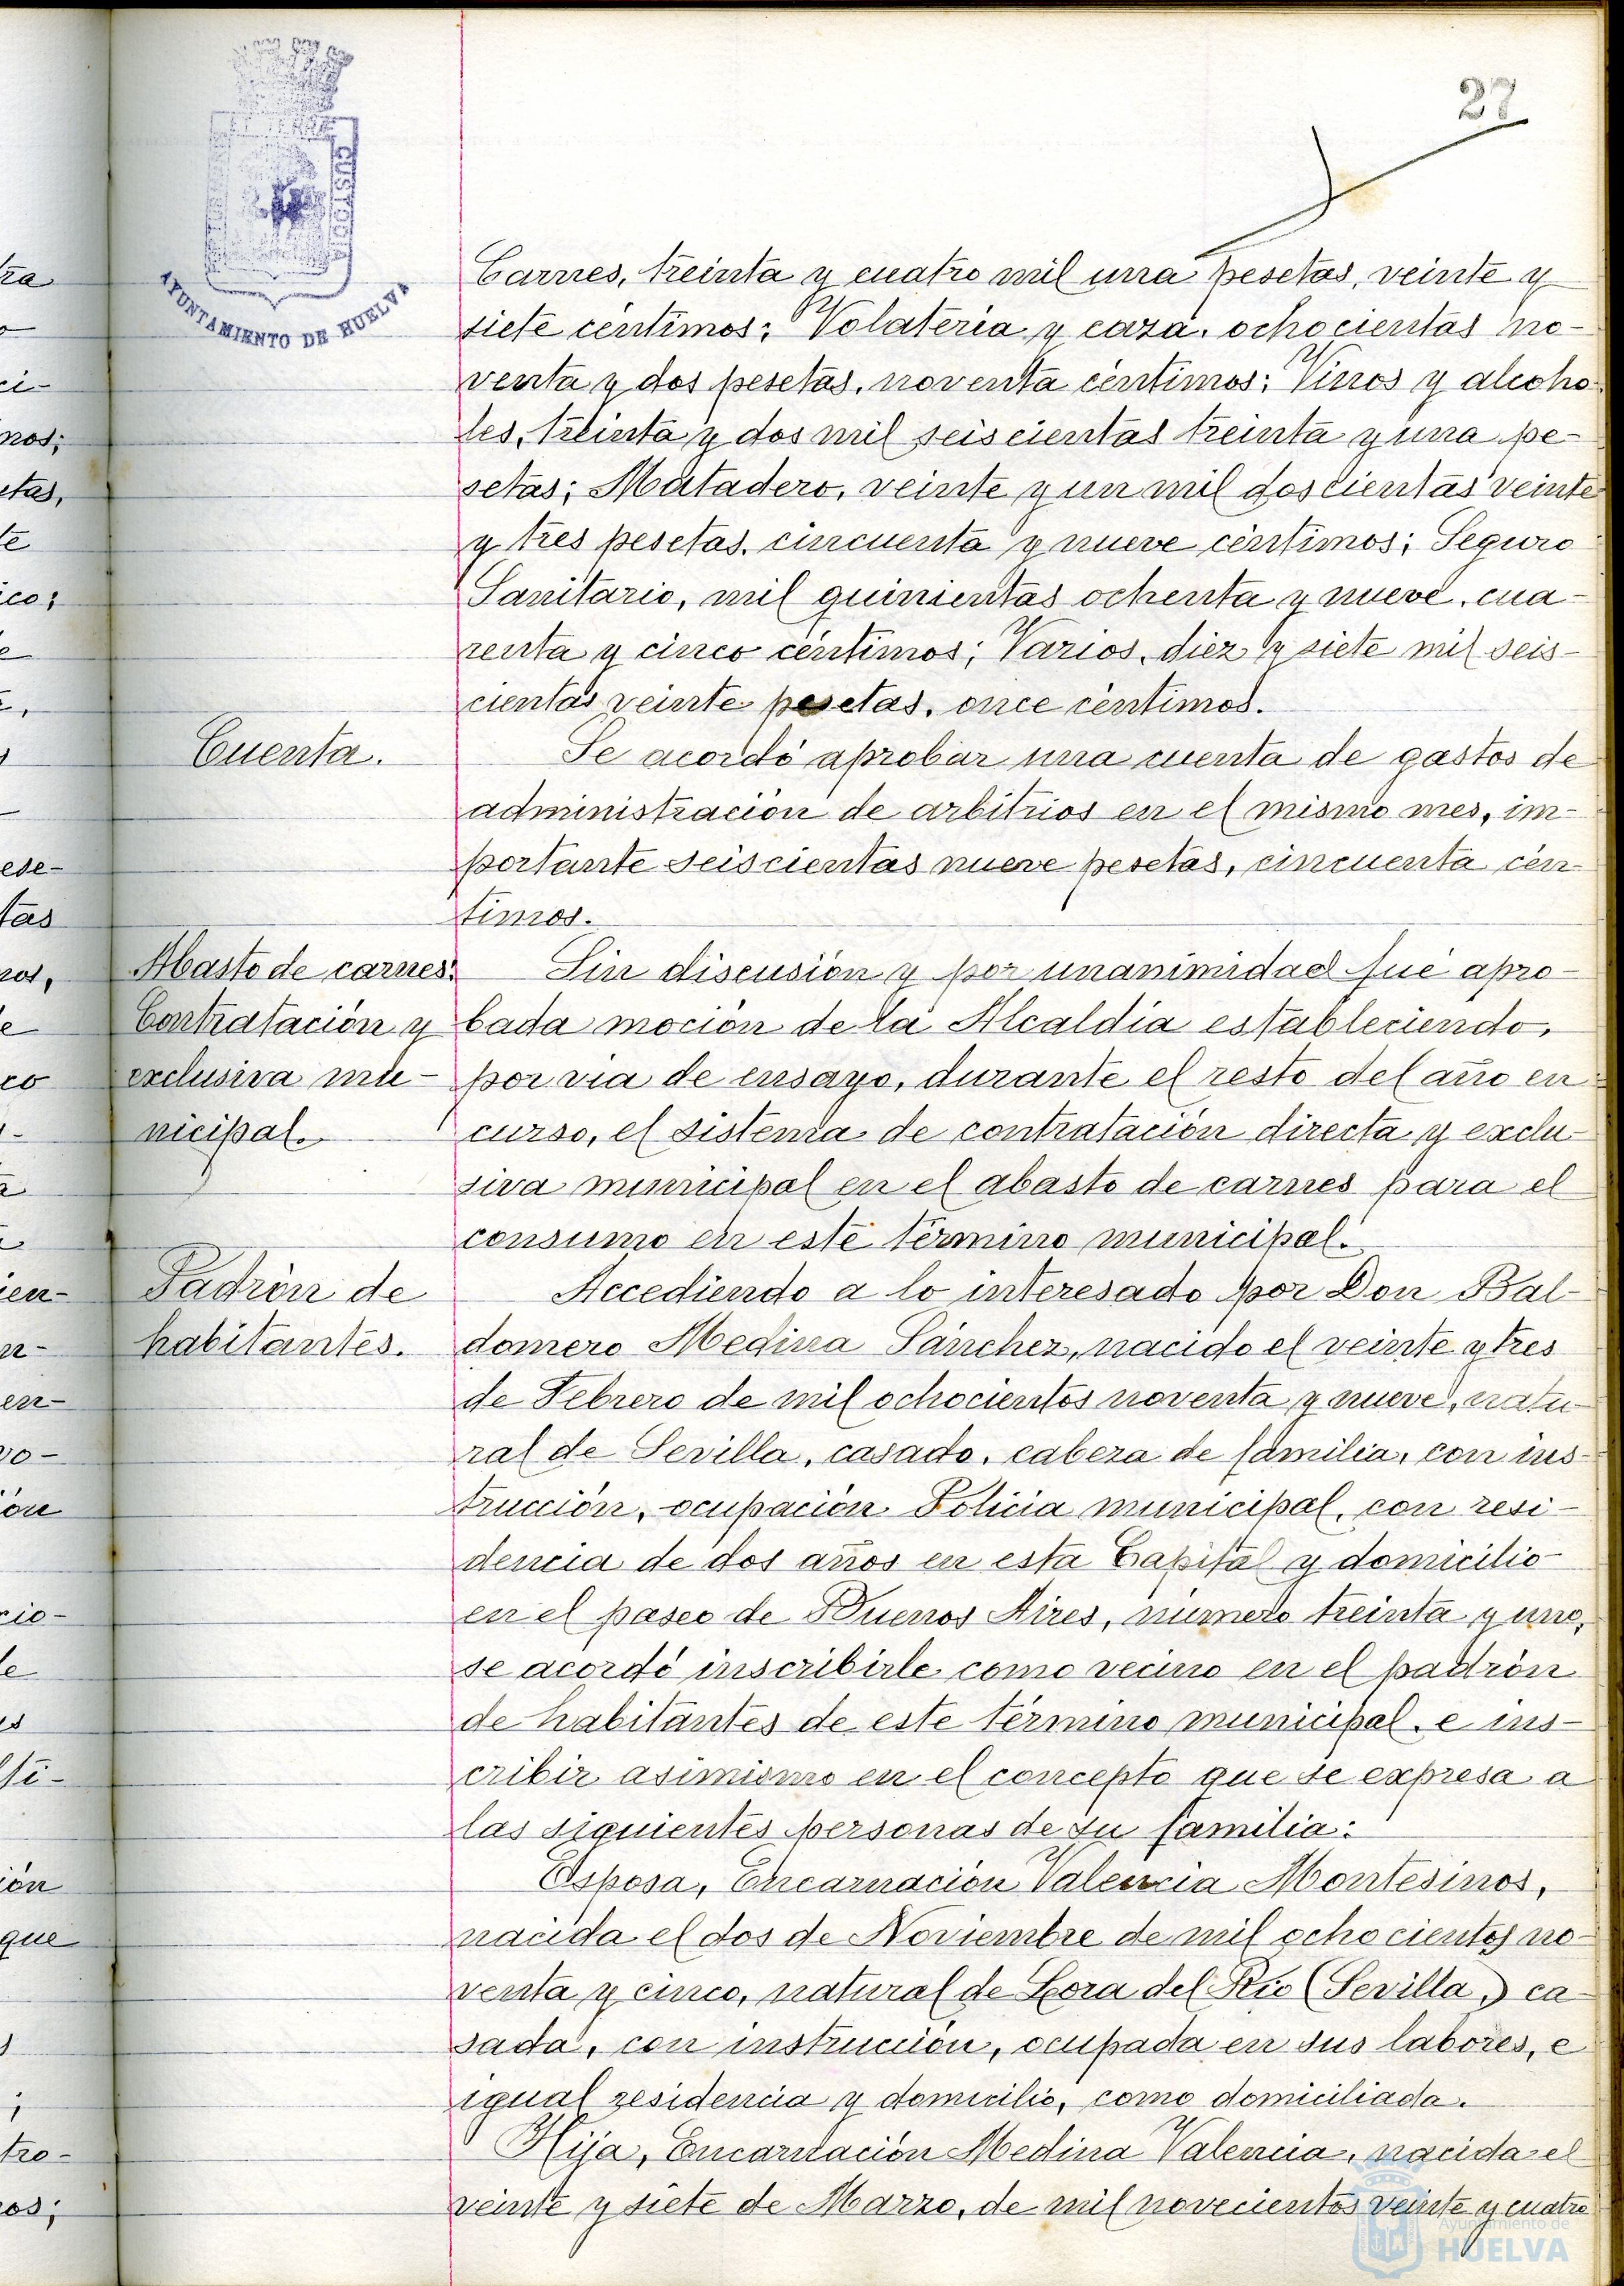 27
ET TERRÆ
CUSTODIA
AYUNTAMIENTO DE HUELVA
Carnes, treinta y cuatro mil una pesetas, veinte y
siete céntimos; Volateria y caza, ochocientas no-
venta y dos pesetas, noventa céntimos; Vinos y alcoho-
les, treinta y dos mil seiscientas treinta y una pe-
setas; Matadero, veinte y un mil doscientas veinte
y tres pesetas, cincuenta y nueve céntimos; Seguro
Sanitario, mil quinientas ochenta y nueve, cua-
renta y cinco céntimos; Varios, diez y siete mil seis-
cientas veinte pesetas, once céntimos.
Cuenta. Se acordó aprobar una cuenta de gastos de
administración de arbitrios en el mismo mes, im-
portante seiscientas nueve pesetas, cincuenta cén-
timos.
Abasto de carnes. Sin discusión y por unanimidad fué apro-
Contratación y bada moción de la Alcaldía estableciendo,
exclusiva mu- por vía de ensayo, durante el resto del año en
nicipal. curso, el sistema de contratación directa y exclu-
siva municipal en el abasto de carnes para el
consumo en este término municipal.
Padrón de Accediendo a lo interesado por Don Bal-
habitantes. domero Medina Sánchez, nacido el veinte y tres
de Febrero de mil ochocientos noventa y nueve, natu-
ral de Sevilla, casado, cabeza de familia, con ins-
trucción, ocupación Policia municipal, con resi-
dencia de dos años en esta Capital y domicilio
en el paseo de Buenos Aires, número treinta y uno,
se acordó inscribirle como vecino en el padrón
de habitantes de este término municipal, e ins-
cribir asimismo en el concepto que se expresa a
las siguientes personas de su familia:
Esposa, Encarnación Valencia Montesinos,
nacida el dos de Noviembre de mil ochocientos no-
venta y cinco, natural de Lora del Río (Sevilla,) ca-
sada, con instrucción, ocupada en sus labores, e
igual residencia y domicilio, como domiciliada.
Hija, Encarnación Medina Valencia, nacida el
veinte y siete de Marzo, de mil novecientos veinte y cuatro
Ayuntamiento de
HUELVA